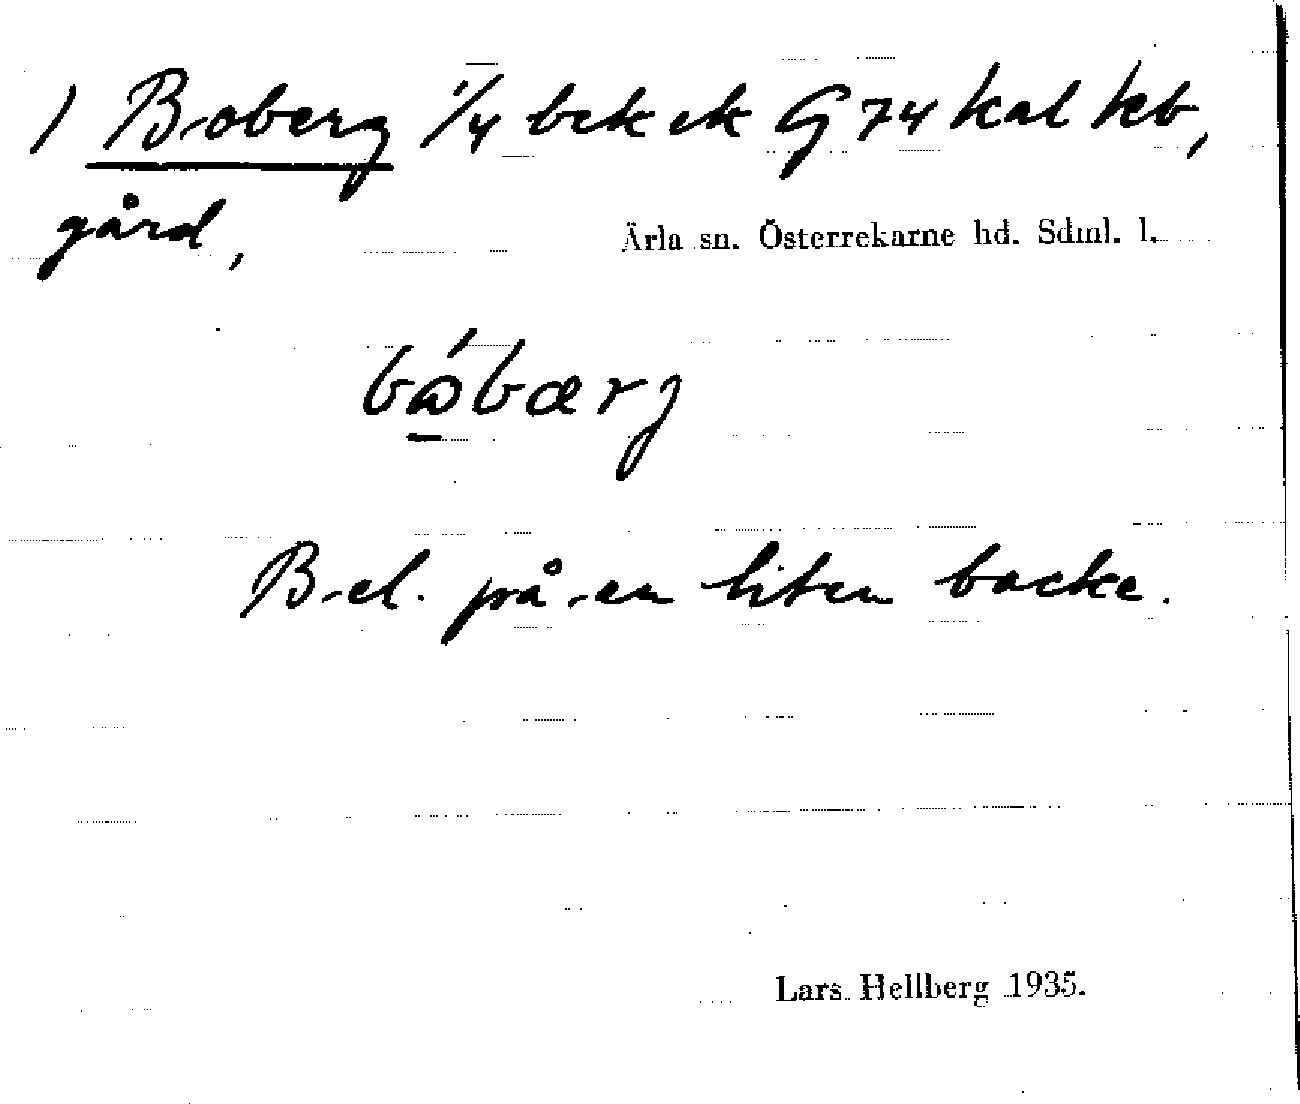 1 Boberg 1/4 bek ek G74 kal kb,
gård,
Ärla sn. Österrekarne hd. Sdml. l.
bɷ́bærj
Bel. på en liten backe.
Lars Hellberg 1935.